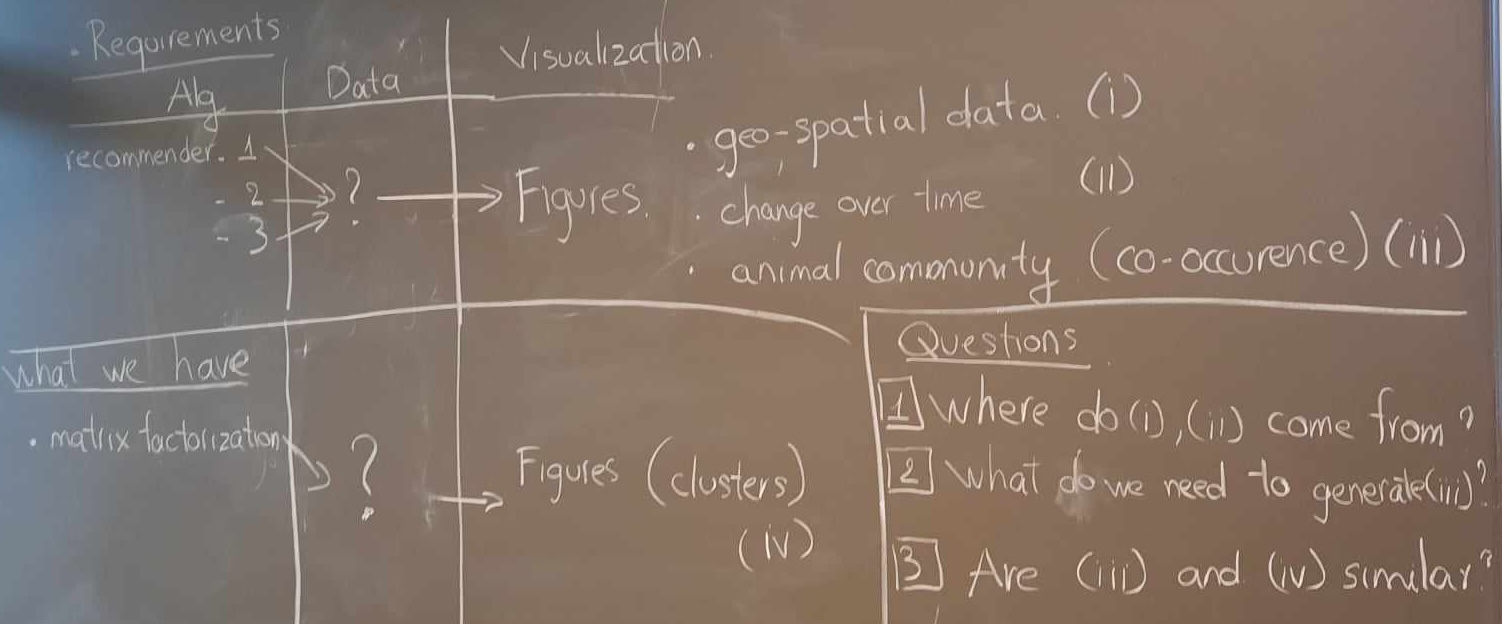 . Requirements.
Alg Data Visualization.
recommender. 1
- 2
- 3
? Figures.
. geo-spatial data. (i)
. change over time (ii)
. animal community (co-occurence) (iii)
What we have
. matrix factorization
? Figures (clusters)
(iv)
Questions
1 Where do (i), (ii) come from?
2 What do we need to generate (iii)?
3 Are (iii) and (iv) similar?